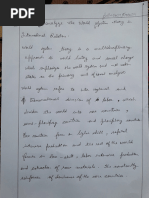 analyze the World System theory in
International Relation
World system theory is a multidisciplinary
approach to world history and social change
which emphasizes the world system and not nation
state as the primary unit of social analysis
World system refers to the
International division of labor, which
divides the world into core countries,
semi-periphery countries and periphery
countries
focus on higher skill, capital
intensive production and rest of the world
focus on low-skill, labor intensive production
and extraction of raw materials. This constantly
reinforces of dominance of the core countries